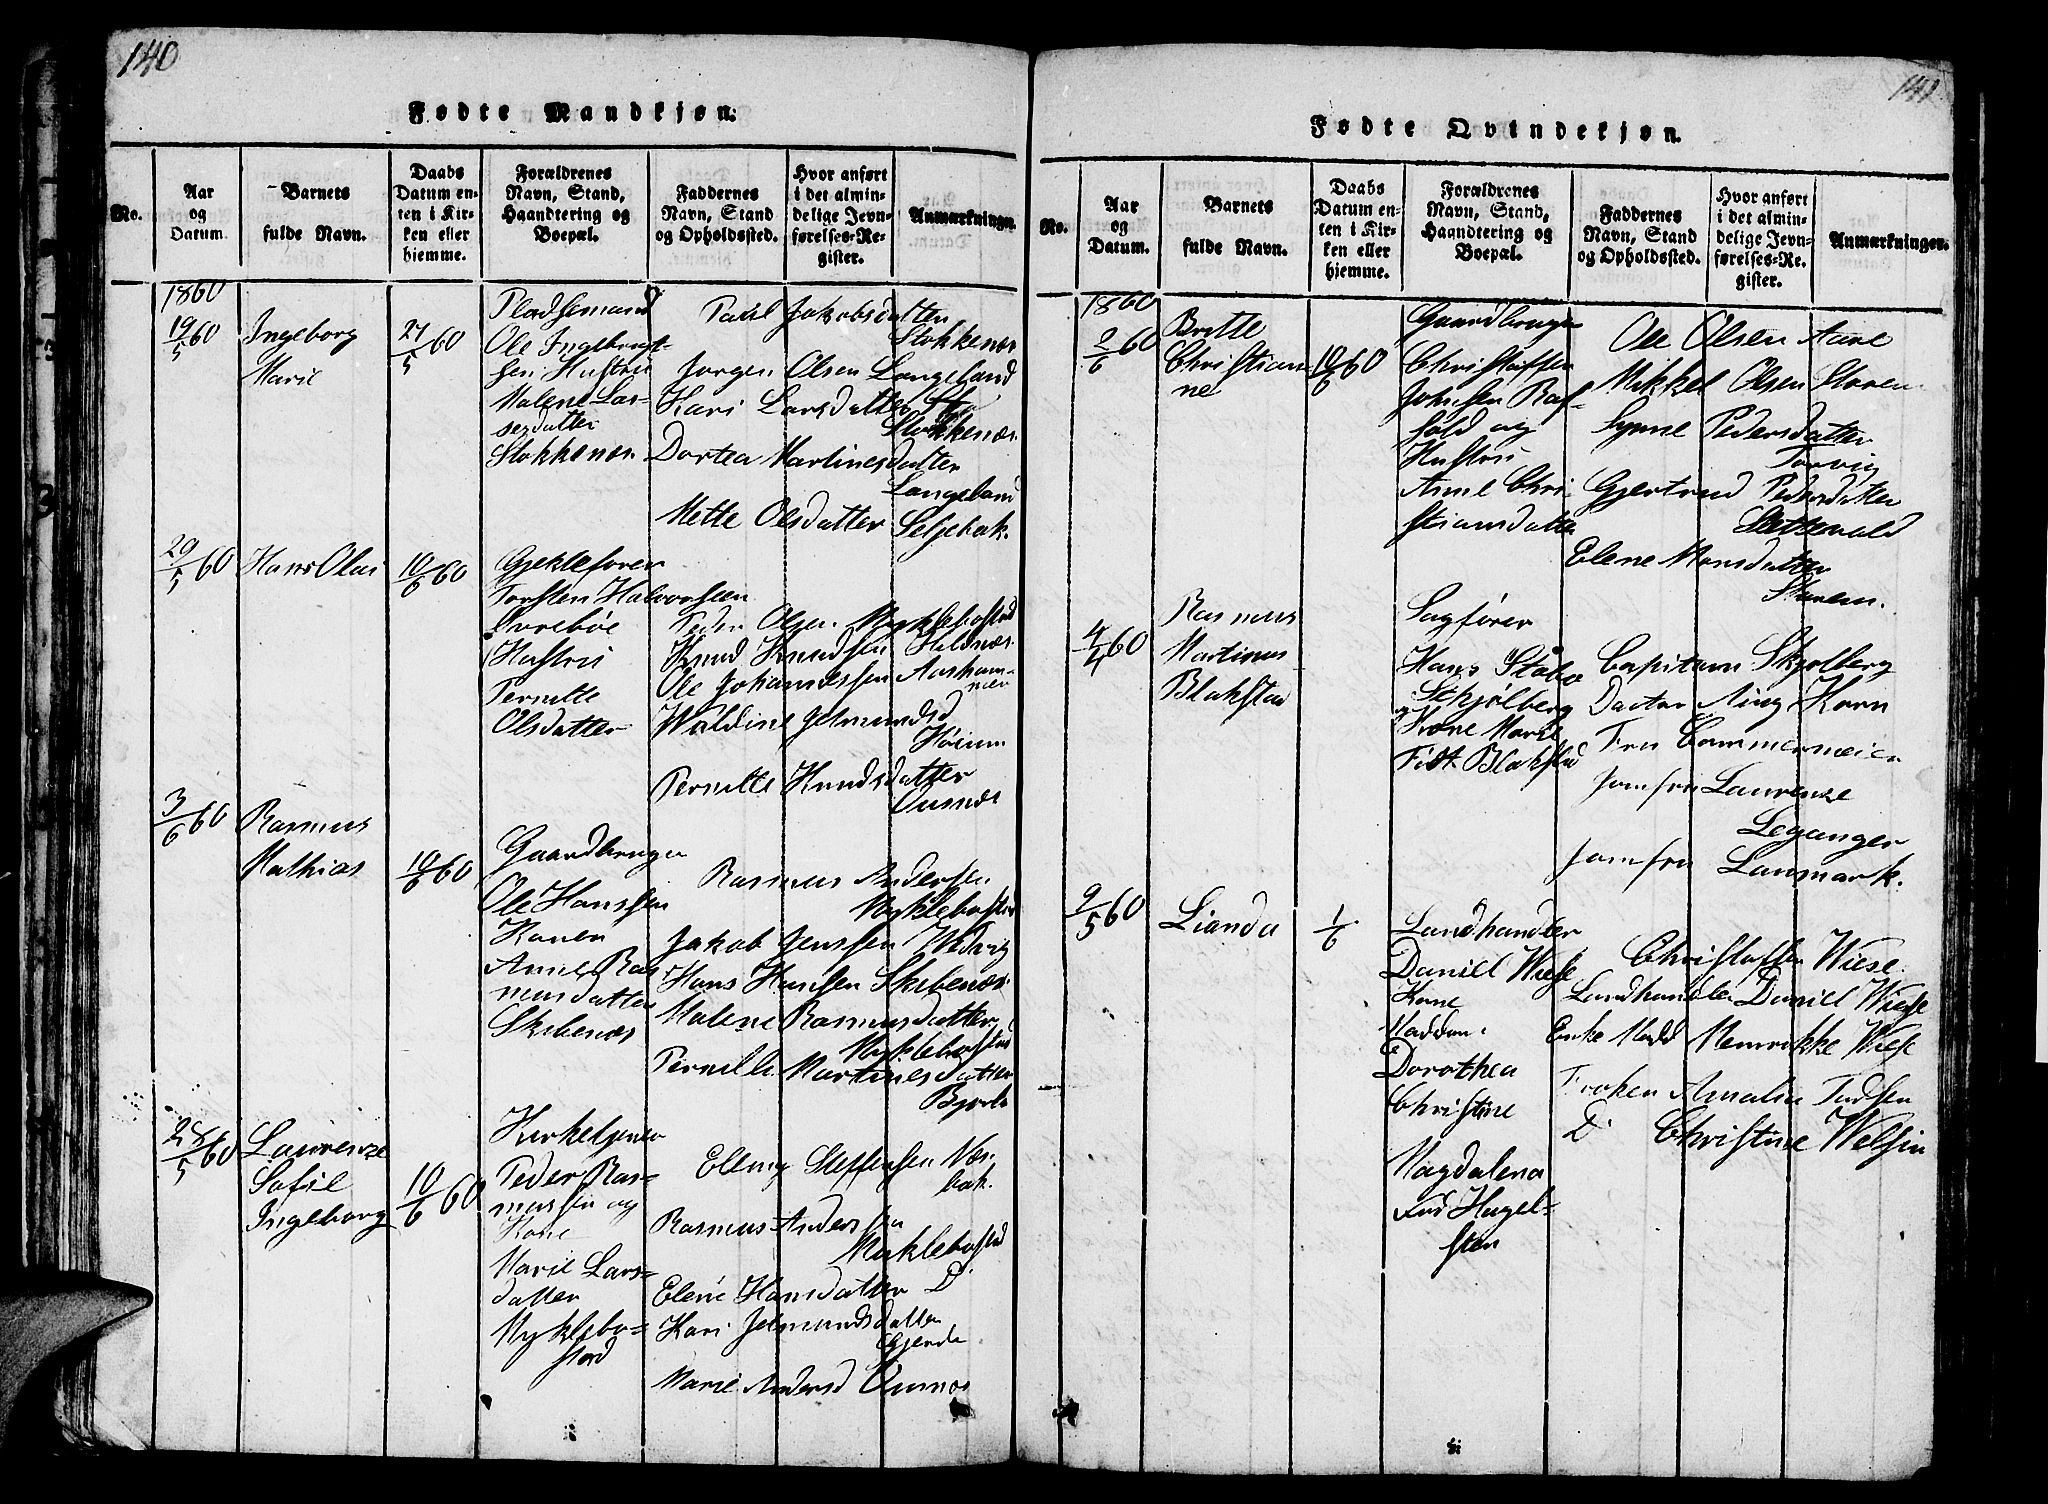 140
Fødte Mandkjøn.
No.
Aar
og
Datum.
Barnets
fulde Navn.
Daabs
Datum en-
ten i Kir-
ken eller
hjemme.
Forældrenes
Navn, Stand,
Haandtering og
Boepæl.
Faddernes
Navn, Stand
og Opholdssted.
Hvor anført
i det almin-
delige Jevn-
førelses-Re-
gister.
Anmærkninger.
1860
19/5 60
Ingeborg
Marie
27/5 60
Pladsemand
Ole Ingebrigt-
sen Hustru
Malene Lar-
sesdatter
Stokkenæs
Paul Jakobsdatter
Stokkenæs
Jørgen Olsen Langeland
Kari Larsdatter
Stokkenæs
Dortea Martinesdatter
Langeland
Mette Olsdatter Seljebak.
29/5 60
Hans Olai
10/6 60
Gjeklefører
Torsten Halvorssen
Øvrebøe
Hustru
Pernille
Olsdatter
Peder Olsen Myklebostad
Knud Knudsen Hildnæs
Ole Johannessen Aarham-
mer
Waldine Jetmundsd
Høium
Pernille Knudsdatter
Ousnæs
3/6 60
Rasmus
Mathias
10/6 60
Gaardbruger
Ole Hanssen
Konen
Anne Ras
musdatter
Skibenæs
Rasmus Andersen
Myklebostad
Jakob Jenssen Widvig
Hans Hansen Skibenæs
Malene Rasmusdatter
Myklebostad
Pernille Martinesdatter
28/5 60
Laurenze
Sofie
Ingeborg
10/6 60
Kirkesjener
Peder Ras-
mussen og
Kone
Marie Lars-
datter
Myklebo-
stad
Elling Steffensen Næs
bak.
Rasmus Andersen
Myklebostad
Elene Hansdatter D
Kari Jetmundsdatter
Gjerde
Marie Andersd Ousnæs
141
Fødte Qvindekjøn.
No.
Aar
og
Datum.
Barnets
fulde Navn.
Daabs
Datum en-
ten i Kir-
ken eller
hjemme.
Forældrenes
Navn, Stand,
Haandtering og
Boepæl.
Faddernes
Navn, Stand
og Opholdssted.
Hvor anført
i det almin-
delige Jevn-
førelses-Re-
gister.
Anmærkninger.
1860
2/6 60
Britte
Christian
ne
10/6 60
Gaardbruger
Christoffer
Johnsen Raf-
told og
Hustru
Anne Chri
stiansdatter
Ole Olsen Aare
Mikkel Olsen Storem
Synne Pedersdatter
Torvig
Gjertrud Pedersdatter
Slettevald
Elene Monsdatter
Storem.
4/4 60
Rasmus
Martinus
Blakstad
Sagfører
Hans Støbø
Skjølberg
Kone Marie
Født Blakstad
Capitain Skjølberg
Doctor Ning Horn
Fru Cammermeier
Jomfru Laurenze
Leganger
Jomfru Lanmark.
9/5 60
Lianda
1/6
Landhandler
Daniel Wiese
Kone
Maddam
Dorothea
Christine
Magdalena
Fød Hagel-
sten
Christoffer Wiese
Landhandler Daniel Wiese
Enke Madd Henrikke Wiese
Frøken Amalia Tudsen
D. Christine Welsin